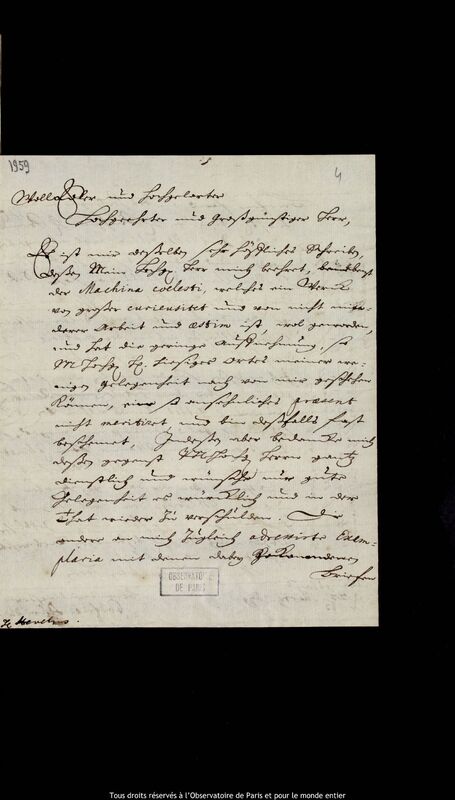 1959
4
WollEdler und Hochgelarter
Hochgeehrter und Großgünstiger Herr,
Es ist mir desselben sehr höfliches Schreiben,
deßen Mein Hochg. Herr mich beehret,
der Machina Coelesti, welches ein Werck
von großer curieusitet und von nicht min-
derer Arbeit und æstim ist, wol geworden,
und hat die geringe Auffnehmung, so
M Hochg. H. hiesiges Ortes meiner we-
nigen Gelegenheit nach von mir geschehen
können, eine so ansehnliches præsent
nicht meritiret, und bin deßfalls fast
beschämet, Indeßen aber bedancke mich
deßen gegenst MHochg. Herrn gantz
dienstlich und wünsche nur gute
Gelegenheit es würcklich und in der
That wieder zu verschulden. Die
andere an mich zugleich adressirte Exem-
plaria mit denen dabey
Briefen
OBSERVATOIRE
DE PARIS
Hevelius.
Tous droits réservés à l'Observatoire de Paris et pour le monde entier